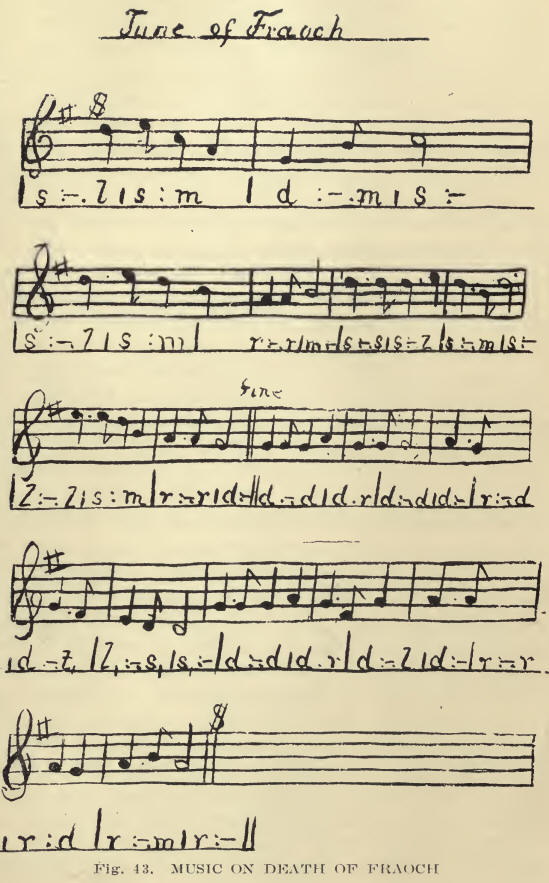 Tune of Fraoch
| s :-. l | s : m | d :-. m | s :-
| s :- l | s : m | r :- r | m :- | s :- s | s :- l | s :- m | s :-
Fine
| l :- l | s : m | r :- r | d :- || d :- d | d . r | d :- d | d :- | r :- d
| d :- t, | l, :- s, | s, :- | d :- d | d . r | d :- l | d :- | r :- r
| r : d | r :- m | r :- ||
Fig. 43. MUSIC ON DEATH OF FRAOCH